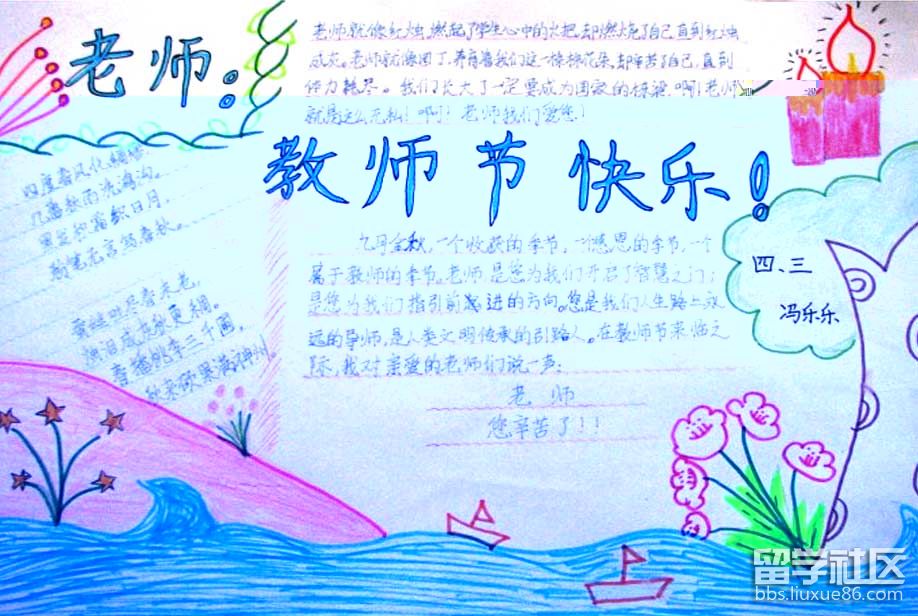 老师：
老师就像红烛，燃起了学生心中的火把，却燃烧了自己直到红烛
成灰。老师就像园丁，养育着我们这一棵棵花朵，却辛苦了自己，直到
体力耗尽。我们长大了一定要成为国家的栋梁。啊！老师
就是这么无私！啊！老师我们爱您！
教师节快乐！
四度春风化绸缪，
几番秋雨洗鸿沟。
黑发积霜织日月，
粉笔无言写春秋。
蚕丝吐尽春未老，
烛泪成灰秋更稠。
春播桃李三千圃，
秋来硕果满神州。
九月金秋，一个收获的季节，一个感恩的季节，一个
属于教师的季节。老师，是您为我们开启了智慧之门；
是您为我们指引前进的方向。您是我们人生路上永
远的导师，是人类文明传承的引路人。在教师节来临之
际，我对亲爱的老师们说一声：
老师
您辛苦了！！
四、三
冯乐乐
留学社区
bbs.liuxue86.com